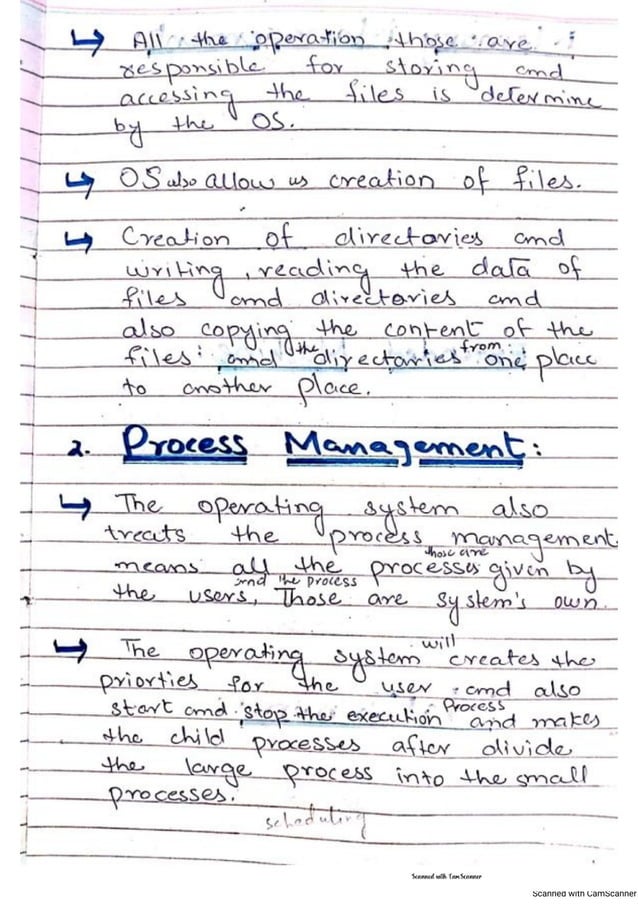 ↳ All the operation those are
responsible for storing and
accessing the files is determine
by the OS.
↳ OS also allow us creation of files.
↳ Creation of directories and
writing, reading the data of
files and directories and
also copying the content of the
files and the directories from one place
to another place.
2. Process Management:
↳ The operating system also
treats the process management
means all the processes those are given by
the users, and the process Those are system's own.
↳ The operating system will creates the
priorties for the user and also
start and stop the execution Process and makes
the child processes after divide
the large process into the small
processes.
scheduling
Scanned with CamScanner
Scanned with CamScanner